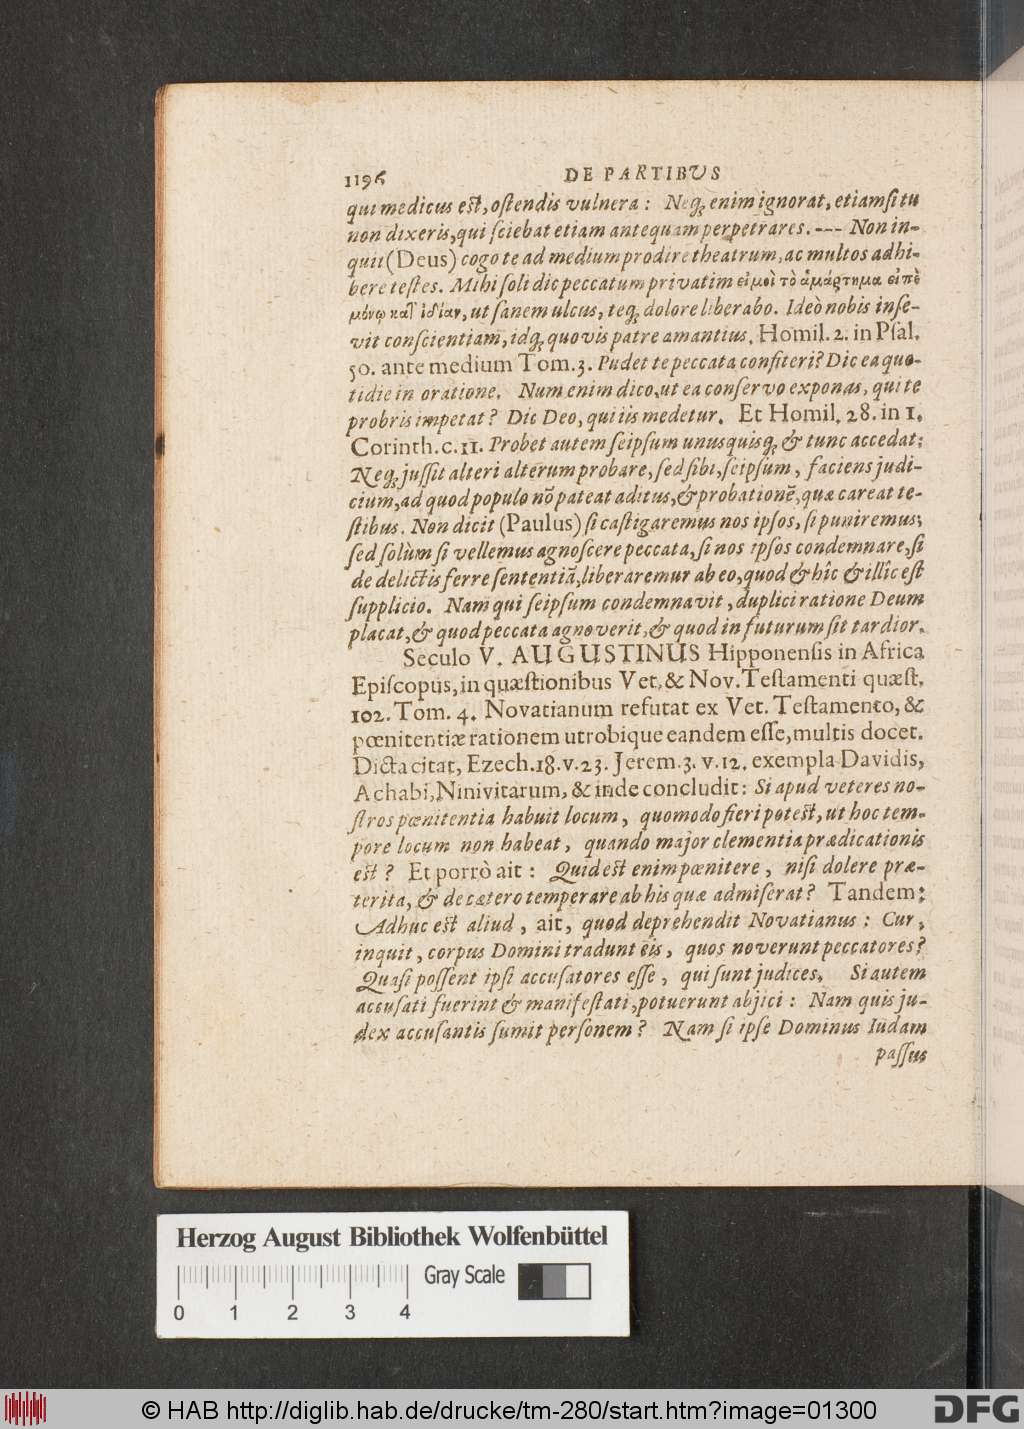 1196 DE PARTIBVS
qui medicus est, ostendis vulnera: Neq; enim ignorat, etiamsi tu
non dixeris, qui sciebat etiam antequam perpetrares. --- Non in-
quit (Deus) cogo te ad medium prodire theatrum, ac multos adhi-
bere testes. Mihi soli dic peccatum privatim εἰμοὶ τὸ ἁμάρτημα εἰπὲ
μόνῳ κατ ἰδίαν, ut sanem ulcus, teq; dolore liberabo. Ideò nobis inse-
vit conscientiam, idq; quovis patre amantius. Homil. 2. in Psal.
50. ante medium Tom. 3. Pudet te peccata confiteri? Dic ea quo-
tidie in oratione. Num enim dico, ut ea conservo exponas, qui te
probris impetat? Dic Deo, qui iis medetur. Et Homil. 28. in 1.
Corinth. c. 11. Probet autem seipsum unusquisq; & tunc accedat:
Neq; jussit alteri alterum probare, sed sibi, seipsum, faciens judi-
cium, ad quod populo nō pateat aditus, & probationē, quæ careat te-
stibus. Non dicit (Paulus) si castigaremus nos ipsos, si puniremus;
sed solùm si vellemus agnoscere peccata, si nos ipsos condemnare, si
de delictis ferre sententiā, liberaremur ab eo, quod & hîc & illîc est
supplicio. Nam qui seipsum condemnavit, duplici ratione Deum
placat, & quod peccata agnoverit, & quod in futurum sit tardior.
Seculo V. AUGUSTINUS Hipponensis in Africa
Episcopus, in quæstionibus Vet. & Nov. Testamenti quæst.
102. Tom. 4. Novatianum refutat ex Vet. Testamento, &
pœnitentiæ rationem utrobique eandem esse, multis docet.
Dicta citat, Ezech. 18. v. 23. Jerem. 3. v. 12. exempla Davidis,
Achabi, Ninivitarum, & inde concludit: Si apud veteres no-
stros pœnitentia habuit locum, quomodo fieri potest, ut hoc tem-
pore locum non habeat, quando major clementia prædicationis
est? Et porrò ait: Quid est enim pœnitere, nisi dolere præ-
terita, & de cætero temperare ab his quæ admiserat? Tandem:
Adhuc est aliud, ait, quod deprehendit Novatianus: Cur,
inquit, corpus Domini tradunt eis, quos noverunt peccatores?
Quasi possent ipsi accusatores esse, qui sunt judices. Si autem
accusati fuerint & manifestati, potuerunt abjici: Nam quis ju-
dex accusantis sumit personem? Nam si ipse Dominus Iudam
passus
Herzog August Bibliothek Wolfenbüttel
Gray Scale
0 1 2 3 4
© HAB http://diglib.hab.de/drucke/tm-280/start.htm?image=01300
DFG